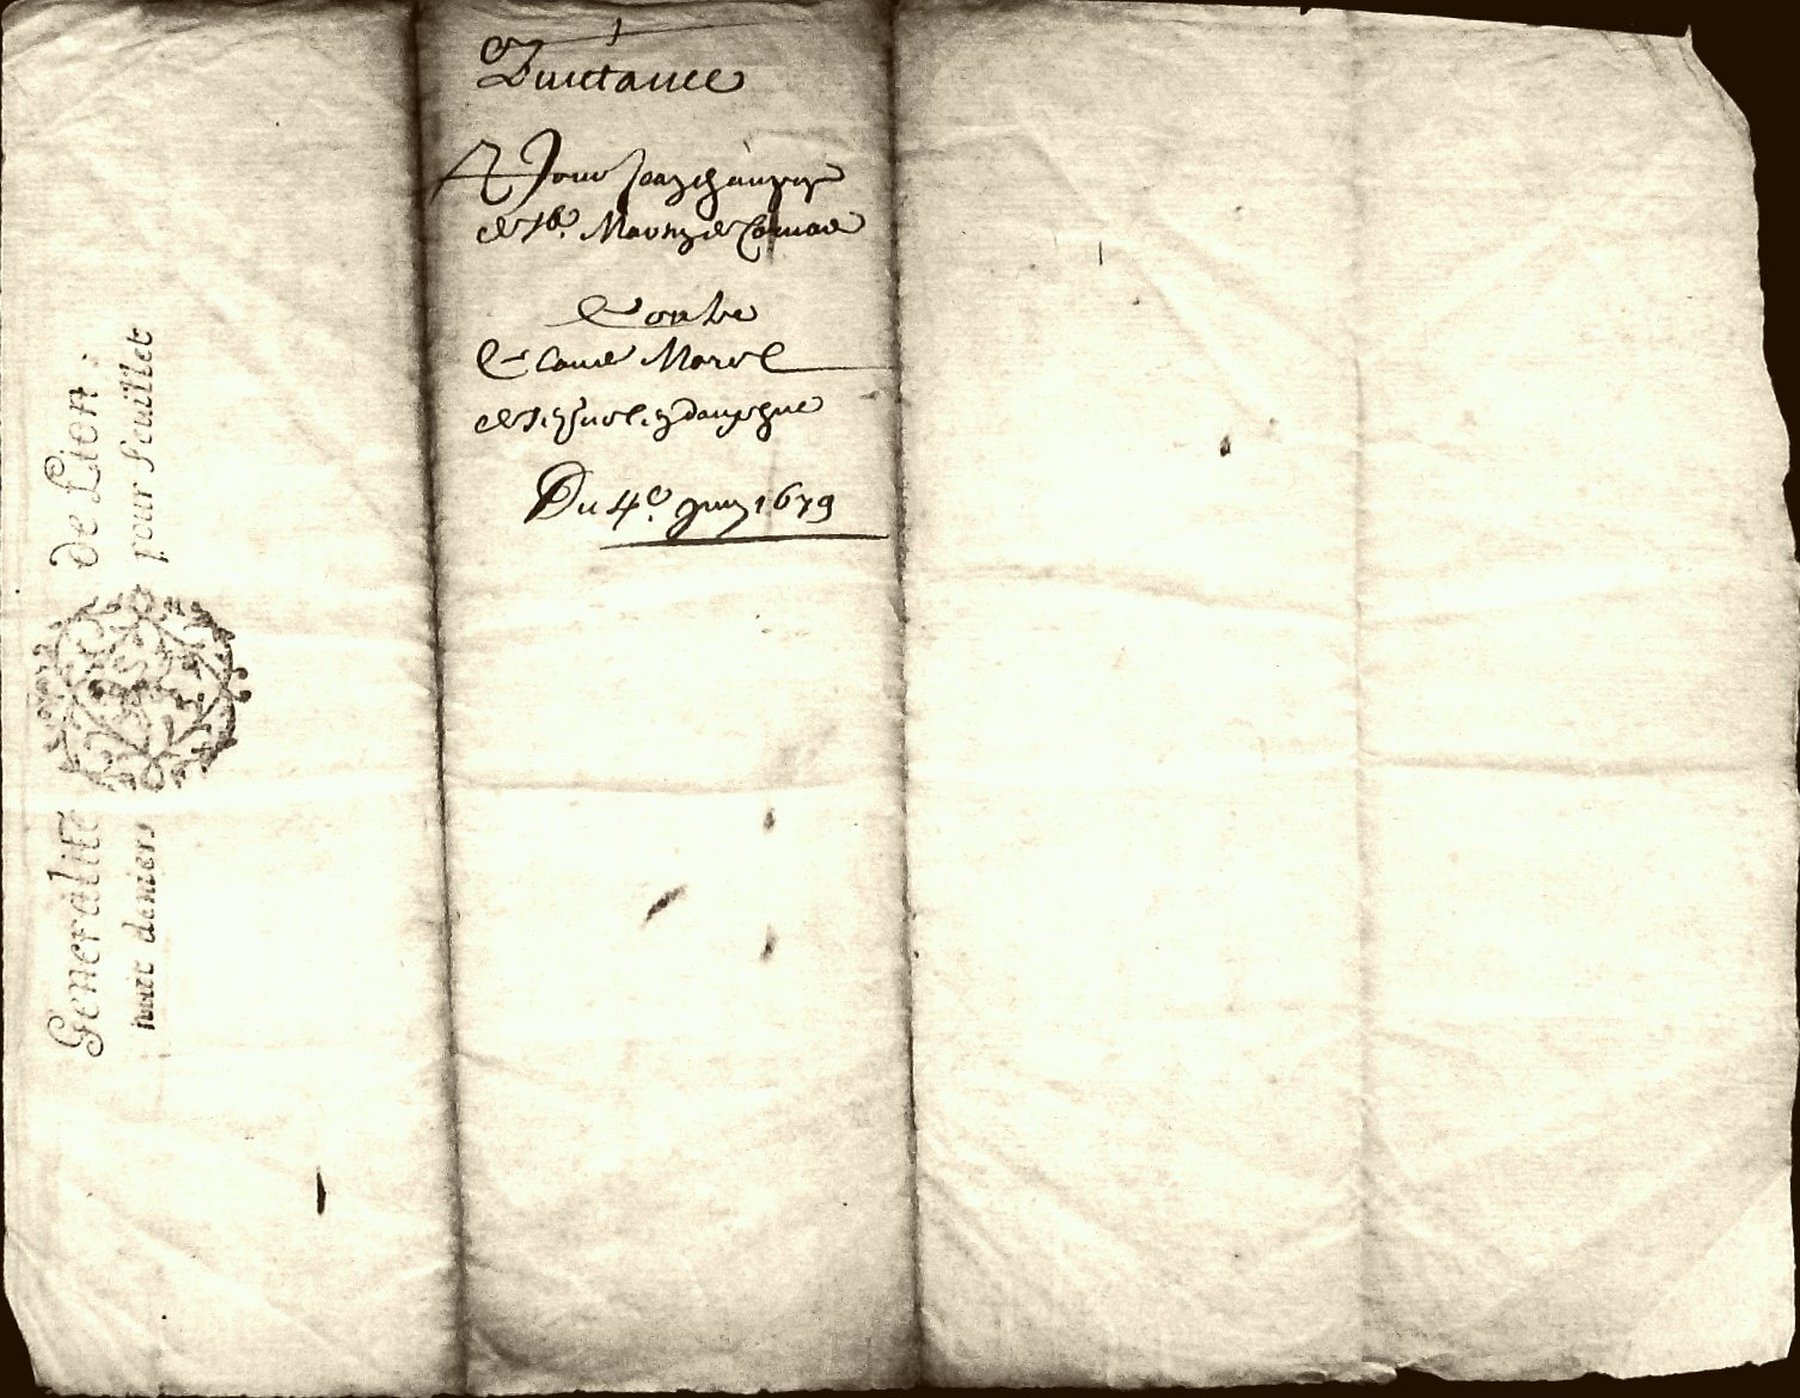 Quittance
Pour Jean
de St. Martin de Cornas
Contre
Claude Morel
de
Du 4e. juin 1679
Generalite de Lion .
huit deniers pour feuillet